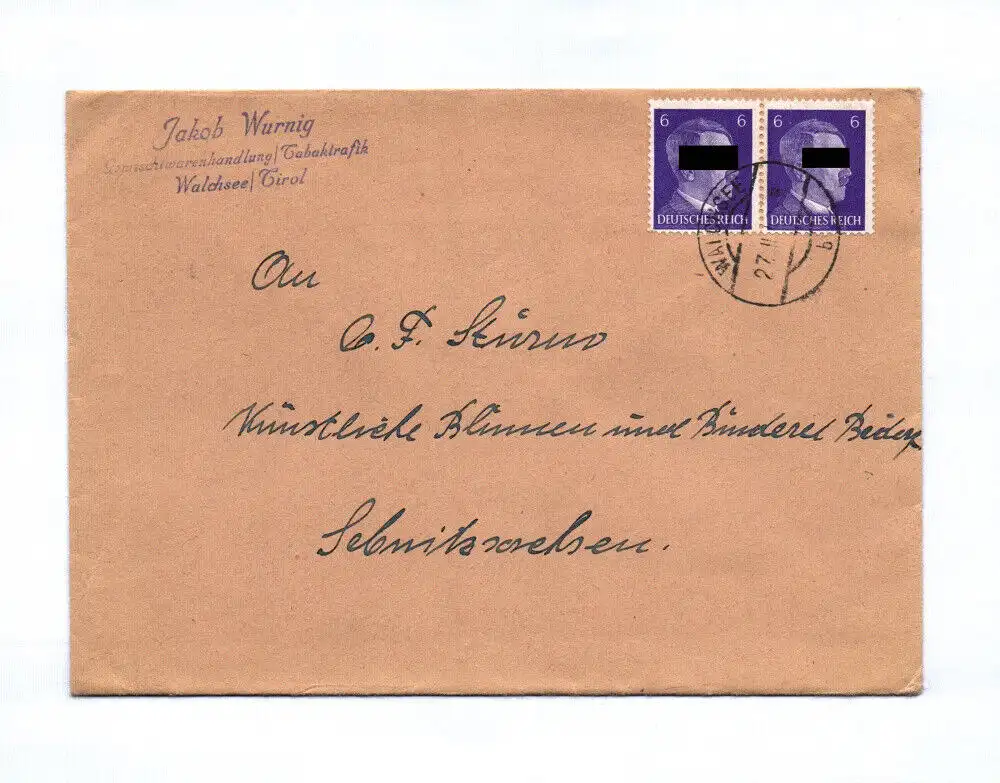 Jakob Wurnig
Gemischtwarenhandlung/Tabaktrafik
Walchsee/Tirol
6 6 6 6
DEUTSCHES REICH DEUTSCHES REICH
WALCHSEE
27. II
b
An
C. F. Sturm
Künstliche Blumen und Binderei Bedarf
Sebnitz Sachsen.